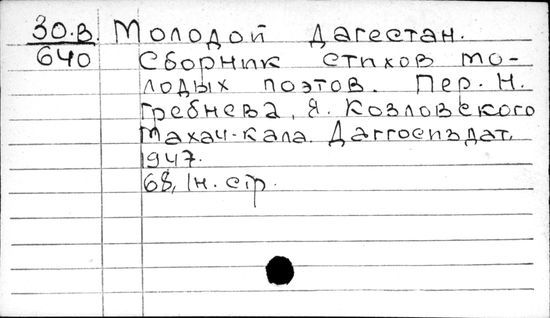 30.В. Молодой Дагестан.
640 Сборник стихов мо-
лодых поэтов. Пер. Н.
Гребнева, Я. Козловского
Махач-кала. Даггосиздат,
1947.
68, 1н. стр.